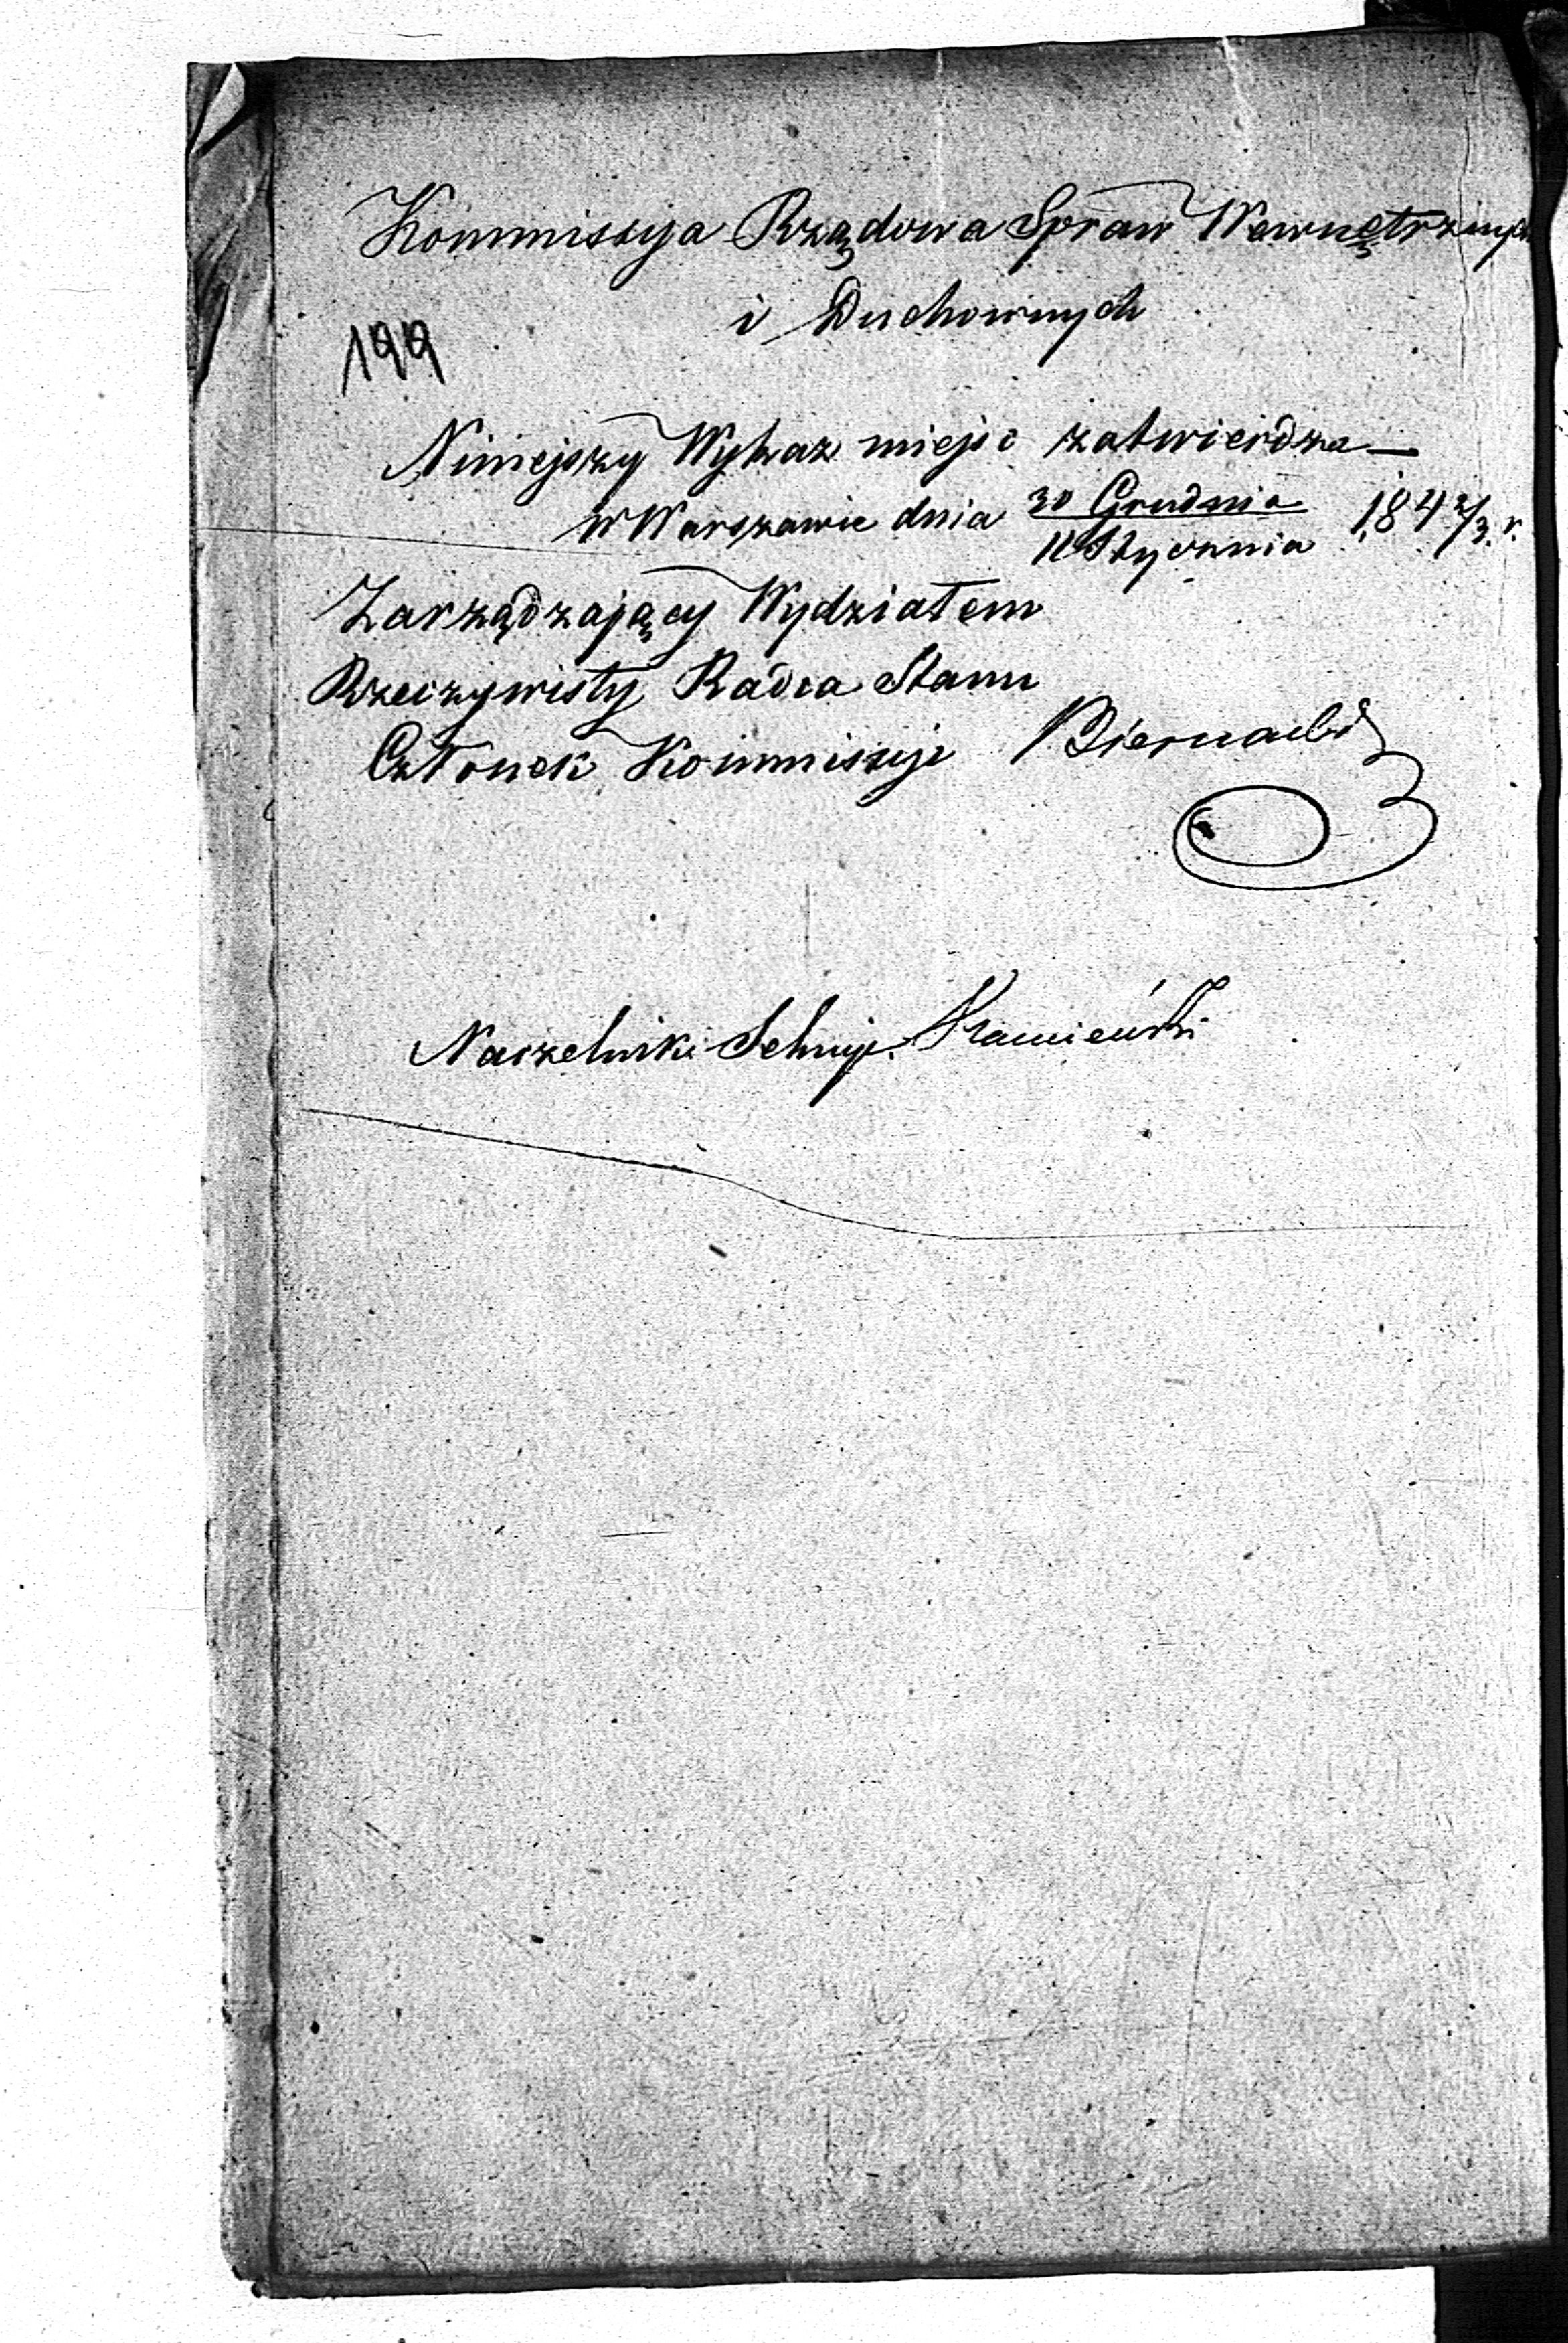 Kommissyja Rządowa Spraw Wewnętrznych
i Duchownych
199
Niniejszy Wykaz miejsc zatwierdza —
w Warszawie dnia 30 Grudnia / 11 Stycznia 184 2/3. r.
Zarządzający Wydziałem
Rzeczywisty Radca Stanu
Członek Kommissyi Biernacki
Naczelnik Sekcyi. Kamieński